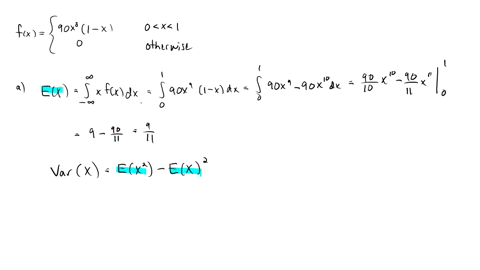 f(x) = { 90x⁸(1-x) 0<x<1
0 otherwise
a) E(x) = ∫_{-∞}^{∞} x f(x) dx = ∫_0^1 90x⁹ (1-x) dx = ∫_0^1 90x⁹ - 90x¹⁰ dx = 90/10 x¹⁰ - 90/11 x¹¹ |_0^1
= 9 - 90/11 = 9/11
Var(X) = E(x²) - E(X)²